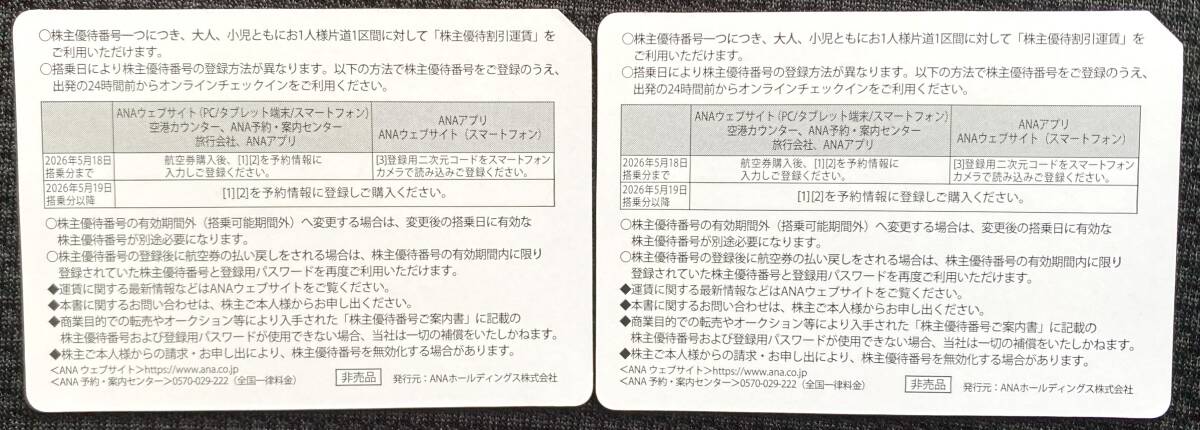 ○株主優待番号一つにつき、大人、小児ともにお1人様片道1区間に対して「株主優待割引運賃」を
ご利用いただけます。
○搭乗日により株主優待番号の登録方法が異なります。以下の方法で株主優待番号をご登録のうえ、
出発の24時間前からオンラインチェックインをご利用ください。
ANAウェブサイト(PC/タブレット端末/スマートフォン)
空港カウンター、ANA予約・案内センター
旅行会社、ANAアプリ
ANAアプリ
ANAウェブサイト(スマートフォン)
2026年5月18日
搭乗分まで
航空券購入後、[1][2]を予約情報に
入力しご登録ください。
[3]登録用二次元コードをスマートフォン
カメラで読み込みご登録ください。
2026年5月19日
搭乗分以降
[1][2]を予約情報に登録しご購入ください。
○株主優待番号の有効期間外(搭乗可能期間外)へ変更する場合は、変更後の搭乗日に有効な
株主優待番号が別途必要になります。
○株主優待番号の登録後に航空券の払い戻しをされる場合は、株主優待番号の有効期間内に限り
登録されていた株主優待番号と登録用パスワードを再度ご利用いただけます。
◆運賃に関する最新情報などはANAウェブサイトをご覧ください。
◆本書に関するお問い合わせは、株主ご本人様からお申し出ください。
◆商業目的での転売やオークション等により入手された「株主優待番号ご案内書」に記載の
株主優待番号および登録用パスワードが使用できない場合、当社は一切の補償をいたしかねます。
◆株主ご本人様からの請求・お申し出により、株主優待番号を無効化する場合があります。
<ANA ウェブサイト>https://www.ana.co.jp
<ANA 予約・案内センター>0570-029-222(全国一律料金)
非売品
発行元:ANAホールディングス株式会社
○株主優待番号一つにつき、大人、小児ともにお1人様片道1区間に対して「株主優待割引運賃」を
ご利用いただけます。
○搭乗日により株主優待番号の登録方法が異なります。以下の方法で株主優待番号をご登録のうえ、
出発の24時間前からオンラインチェックインをご利用ください。
ANAウェブサイト(PC/タブレット端末/スマートフォン)
空港カウンター、ANA予約・案内センター
旅行会社、ANAアプリ
ANAアプリ
ANAウェブサイト(スマートフォン)
2026年5月18日
搭乗分まで
航空券購入後、[1][2]を予約情報に
入力しご登録ください。
[3]登録用二次元コードをスマートフォン
カメラで読み込みご登録ください。
2026年5月19日
搭乗分以降
[1][2]を予約情報に登録しご購入ください。
○株主優待番号の有効期間外(搭乗可能期間外)へ変更する場合は、変更後の搭乗日に有効な
株主優待番号が別途必要になります。
○株主優待番号の登録後に航空券の払い戻しをされる場合は、株主優待番号の有効期間内に限り
登録されていた株主優待番号と登録用パスワードを再度ご利用いただけます。
◆運賃に関する最新情報などはANAウェブサイトをご覧ください。
◆本書に関するお問い合わせは、株主ご本人様からお申し出ください。
◆商業目的での転売やオークション等により入手された「株主優待番号ご案内書」に記載の
株主優待番号および登録用パスワードが使用できない場合、当社は一切の補償をいたしかねます。
◆株主ご本人様からの請求・お申し出により、株主優待番号を無効化する場合があります。
<ANA ウェブサイト>https://www.ana.co.jp
<ANA 予約・案内センター>0570-029-222(全国一律料金)
非売品
発行元:ANAホールディングス株式会社